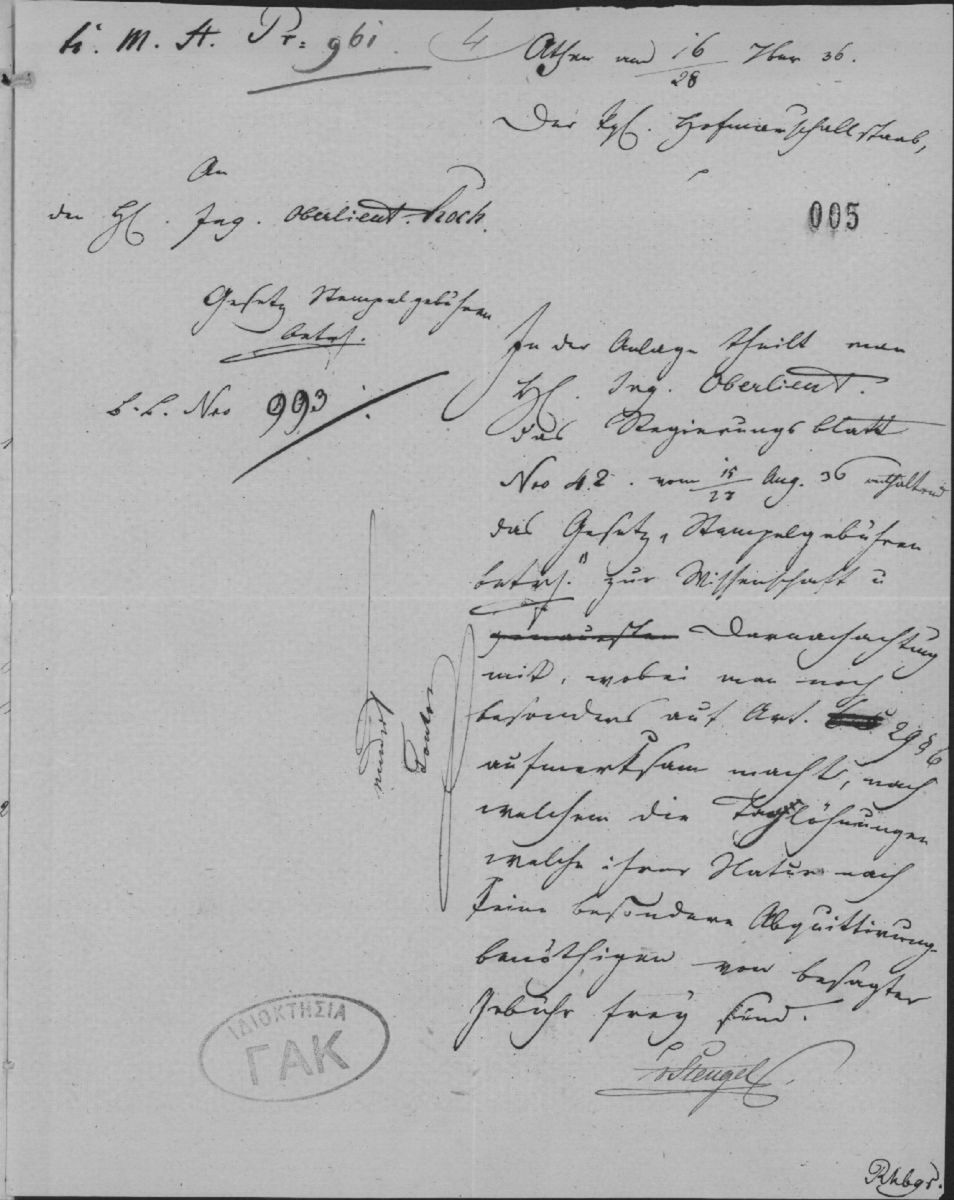 H. M. St. Pr: 961. 4
Athen am 16/28 7ber 36.
Der kgl. Hofmarschallstaab,
An
den H. Ing. Oberlieut. Hoch.
005
Gesetz Stempelgebühren
betrf.
Nro 993
In der Anlage theilt man
H. Ing. Oberlieut.
das Regierungsblatt
Nro 42. vom 15/27 Aug. 36 enthaltend
das Gesetz „Stempelgebühren
betrf." zur Wissenschaft u
genauesten Darnachachtung
mit, wobei man noch
besonders auf Art. 29 § 6
aufmerksam macht, nach
welchem die Taglöhnungen
welche ihrer Natur nach
keine besondere Abquittirung
benöthigen von besagter
Gebühr frey sind.
vStengel
ΙΔΙΟΚΤΗΣΙΑ
ΓΑΚ